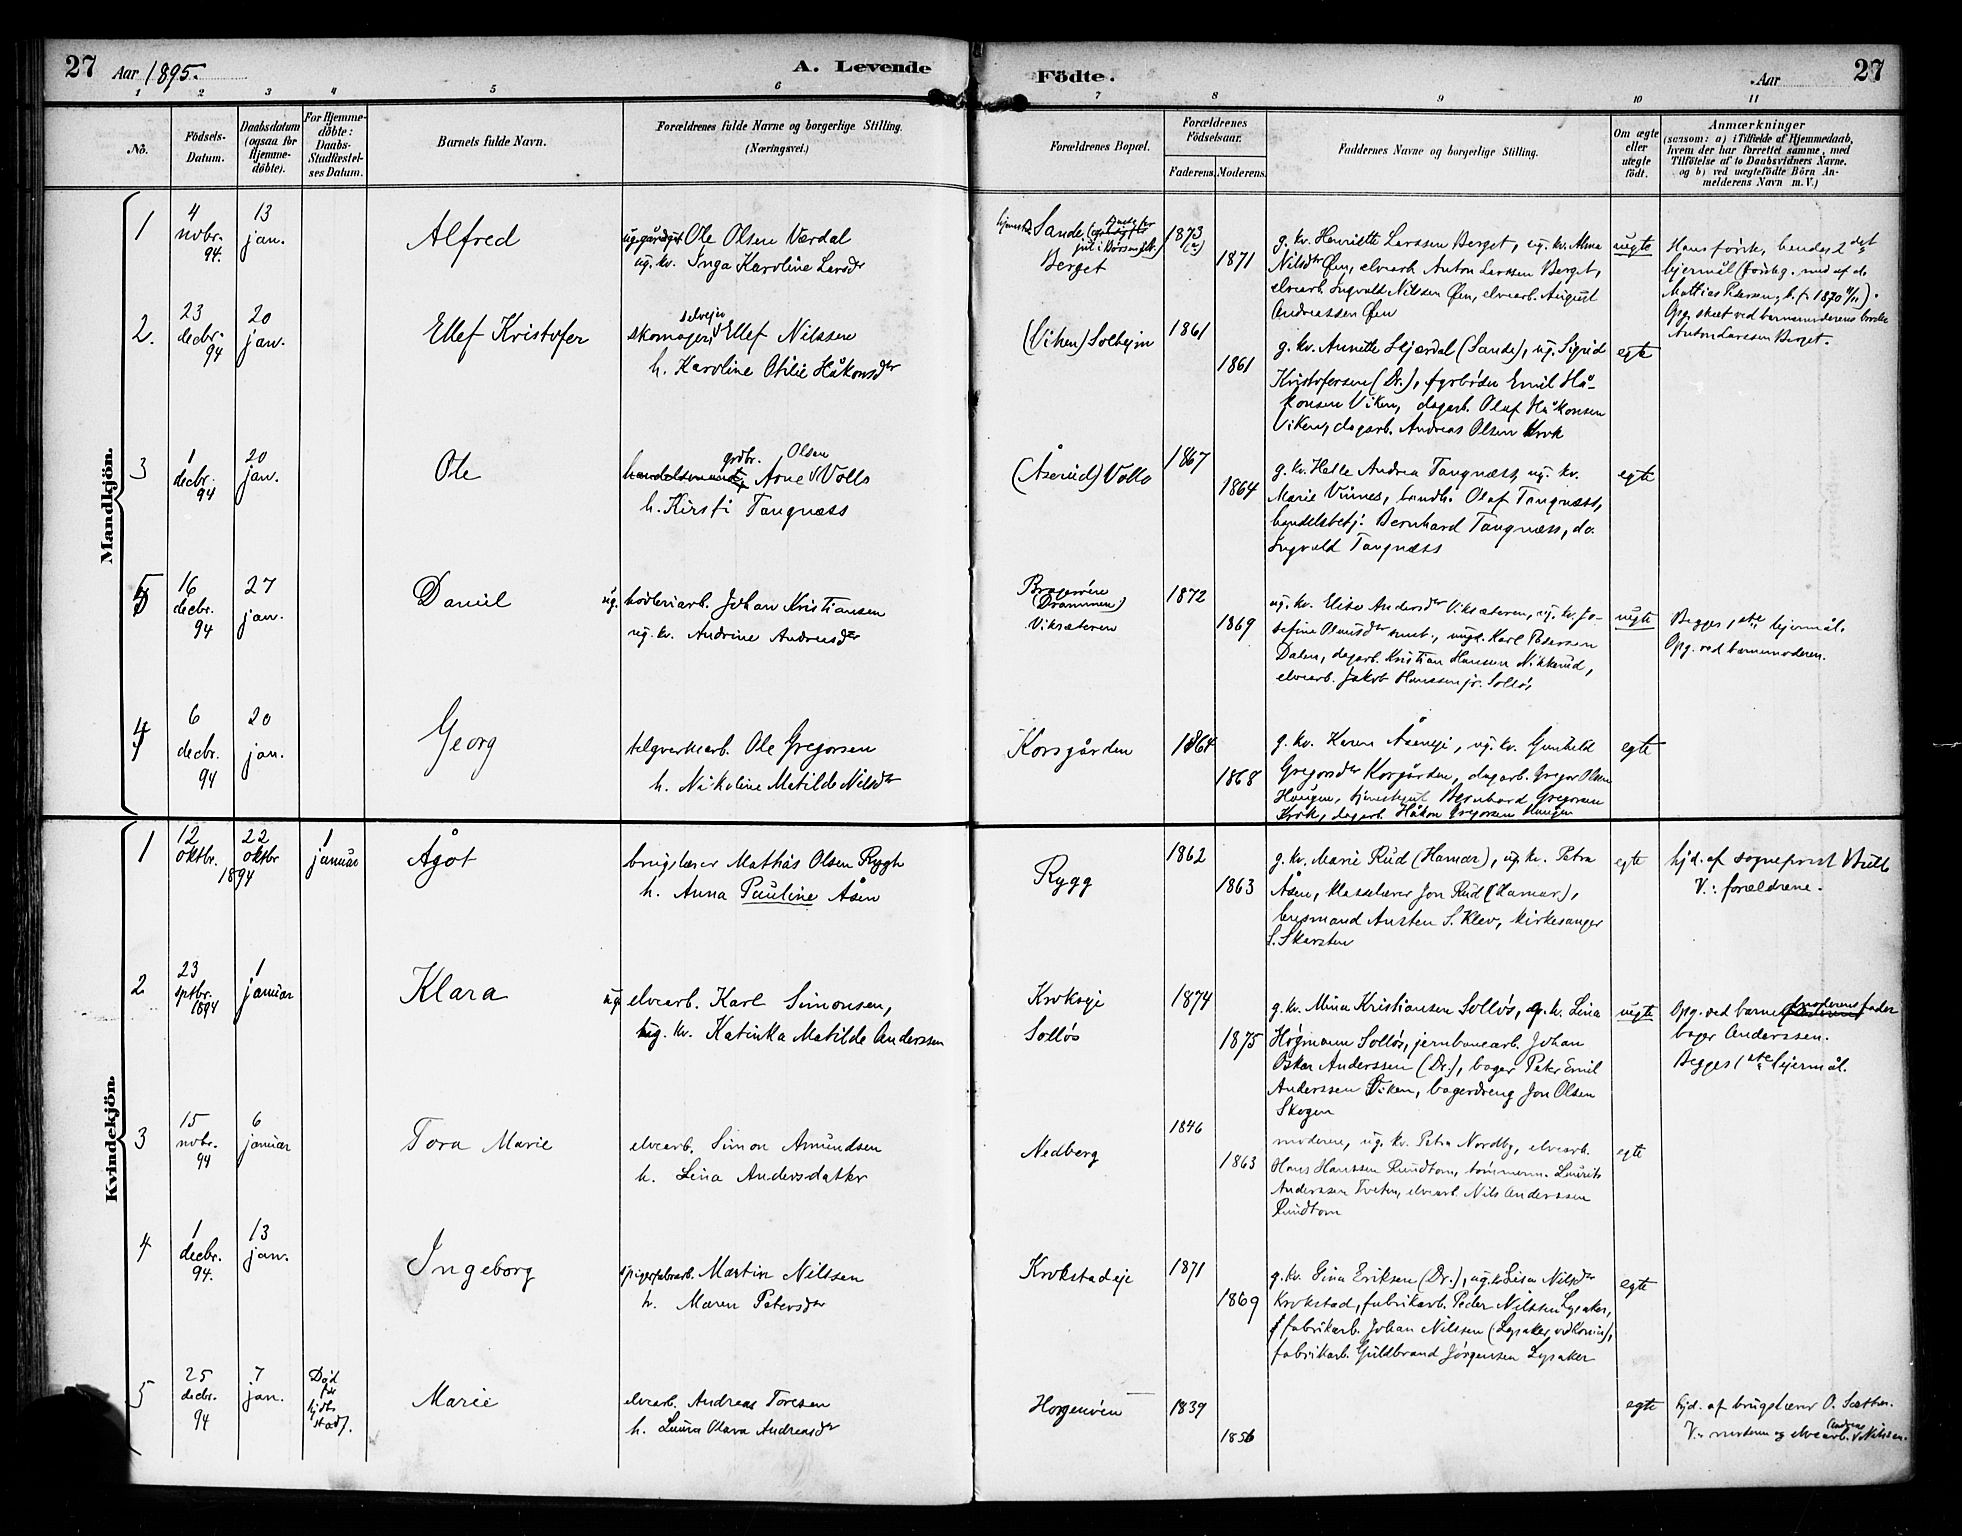 27 Aar 1895. A. Levende Födte. Aar 27
1 2 3 4 5 6 7 8 9 10 11
No. Födsels-Datum. Daabsdatum (ogsaa for Hjemme-döbte). For Hjemme-döbte: Daabs-Stadfæstel-ses Datum. Barnets fulde Navn. Forældrenes fulde Navne og borgerlige Stilling. (Næringsvei.) Forældrenes Bopæl. Forældrenes Födselsaar. Faderens. Moderens. Faddernes Navne og borgerlige Stilling. Om ægte eller uægte födt. Anmærkninger (saasom: a) i Tilfælde af Hjemmedaab, hvem der har forrettet samme, med Tilföielse af to Daabsvidners Navne. og b) ved uægtefödte Börn An-melderens Navn m. V.)
Mandkjön.
1
4 novbr. 94.
13 jan.
Alfred
Ole Olsen Værdal
ug. kv. Inga Karoline Larsdr
Sande
Berget
1873
1871
g. kv. Henriette Larssen Berget, ug. kv. Alma
Nilsdr Øen, elvearb. Anton Larssen Berget,
elvearb. Ingvald Nilssen Øen, elvearb. August
Andreassen Øen
uegte
Hans første, hendes 2det
lejermål
Mattias Pedersen, b. f. 1870
Opg. skeet ved barnemoderens broder
Anton Larssen Berget.
2.
23 decbr. 94
20 jan.
Ellef Kristofer
selvejer
skomager, Ellef Nilssen
h. Karoline Otilie Håkonsdr
(Viken) Solhejm
1861
1861
g. kv. Annette Skjærdal (Sande), ug. Sigrid
Kristofersen (Dr.), fyrbøder Emil Hå-
konsen Viken, dagarb. Olaf Håkonsen
Viken, dagarb. Andreas Olsen Krok
egte
3
1 decbr. 94
20 jan.
Ole
grdbr. Olsen
handelsmand, Arne Vollo
h. Kirsti Tangnæss
(Åserud) Vollo
1867
1864
g. kv. Helle Andrea Tangnæss, ug. kv.
Marie Vinnes, landh. Olaf Tangnæss,
handelsbetj. Bernhard Tangnæss, do.
Ingvald Tangnæss
egte
5
16 decbr. 94
27 jan.
Daniel
ug. høvleriarb. Johan Kristiansen
ug. kv. Andrine Andreasdr
Bragerøen
(Drammen)
Viksæteren
1872
1869
ug. kv. Elise Andersdr Viksæteren, ug. kv. Jo-
sefine Olausdr smst., ungk. Karl Pedersen
Dalen, dagarb. Kristian Hansen Nikkerud,
elvearb. Jakob Hanssen jr. Solløs
uegte
Begges 1ste lejermål.
Opg. ved barnemoderen.
4
6 decbr. 94
20 jan.
Georg
telgverksarb. Ole Gregorsen
h. Nikoline Matilde Nilsdr
Korsgården
1864
1868
g. kv. Karen Åseneje, ug. kv. Gunhild
Gregorsdr Korsgården, dagarb. Gregor Olsen
Haugen, tjenestegut Bernhard Gregorsen
Krok, dagarb. Håkon Gregorsen Haugen
egte
Kvindekjön.
1
12 oktbr.
22 oktbr
1894
1 januar
Ågot
brugslærer Mathias Olsen Rygh
h. Anna Pauline Åsen
Rygg
1862
1863
g. kv. Marie Rud (Hamar), ug. kv. Petra
Åsen, klasselærer Jon Rud (Hamar),
lensmand Austen S. Klev, kirkesanger
S. Skarsten
egte
hjd. af sogneprest Bull
V.: forældrene.
2
23 sptbr. 1894
1 januar
Klara
ug. elvearb. Karl Simonsen,
ug. kv. Katinka Matilde Anderssen
Krokseje
Solløs
1874
1875
g. kv. Mina Kristiansen Solløs, g. kv. Lina
Høgmann Solløs, jernbanearb. Johan
Oskar Anderssen (Dr.), bager Peter Emil
Anderssen Viken, bagerdreng Jon Olsen
Skogen
uegte
Opg. ved barnemoderens fader
bager Anderssen.
Begges 1ste lejermål.
3
15 novbr. 94
6 januar
Tora Marie
elvearb. Simon Amundsen
h. Lina Andersdatter
Nedberg
1846
1863
moderen, ug. kv. Petra Nordby, elvearb.
Hans Hanssen Rundtom, tømmerm. Laurits
Anderssen Tveten, elvearb. Nils Anderssen
Rundtom
egte
4
1 decbr. 94.
13 jan.
Ingeborg
spigerfabrarb. Martin Nilssen
h. Maren Petersdr
Krokstadeje
1871
1869
g. kv. Gina Eriksen (Dr.), ug. kv. Lisa Nilsdr
Krokstad, fabrikarb. Peder Nilssen Lysaker,
fabrikarb. Johan Nilssen (Lysaker v. Kra.nia),
fabrikarb. Guldbrand Jørgensen Lysaker
egte
5
25 decbr. 94
7 jan.
Død før hjdb. stadf.
Marie
elvearb. Andreas Toresen
h. Laura Olava Andreasdr
Horgenøen
1839
1856
egte
hjd. af brugslærer O. Sæther.
V.: moderen og elvearb. Andreas Nilssen.